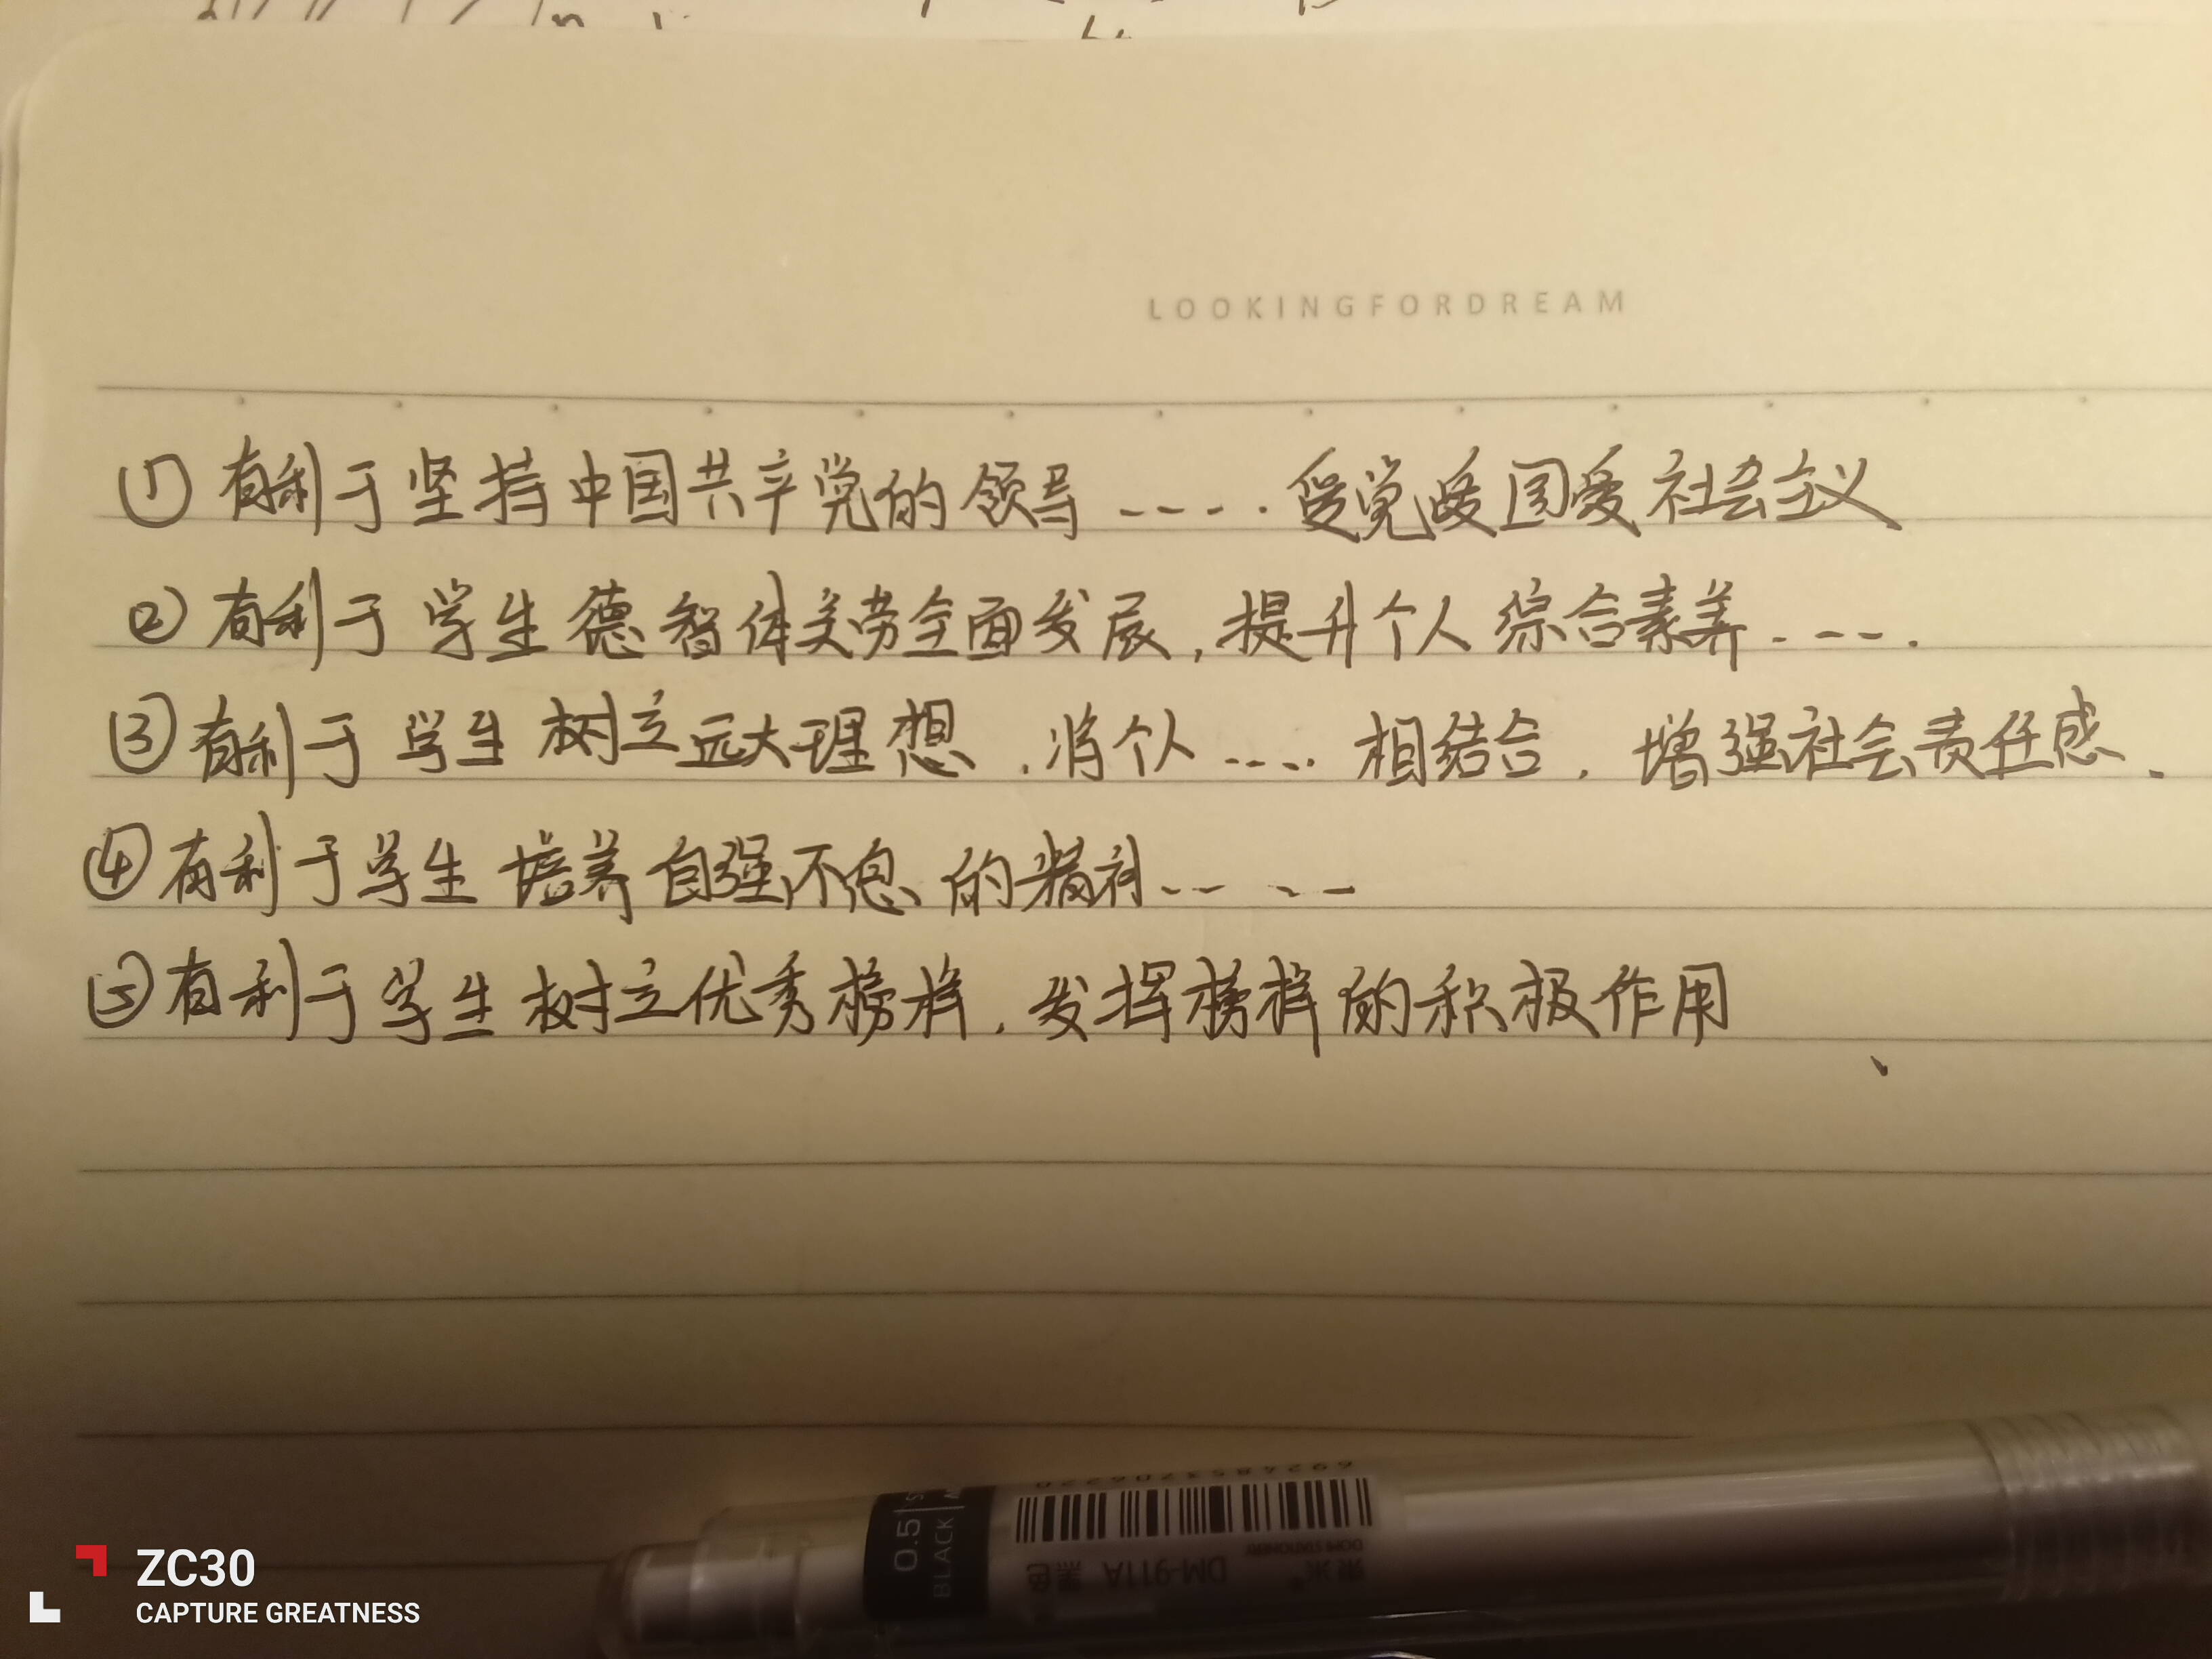 LOOKINGFORDREAM
①有利于坚持中国共产党的领导-----.爱党爱国爱社会主义
②有利于学生德智体美劳全面发展,提升个人综合素养.---.
③有利于学生树立远大理想.将个人----相结合.增强社会责任感.
④有利于学生培养自强不息的精神-----
⑤有利于学生树立优秀榜样.发挥榜样的积极作用
6924853706220
0.5
BLACK
DM-911A 黑色
东米
DOMI STATIONERY
ZC30
CAPTURE GREATNESS